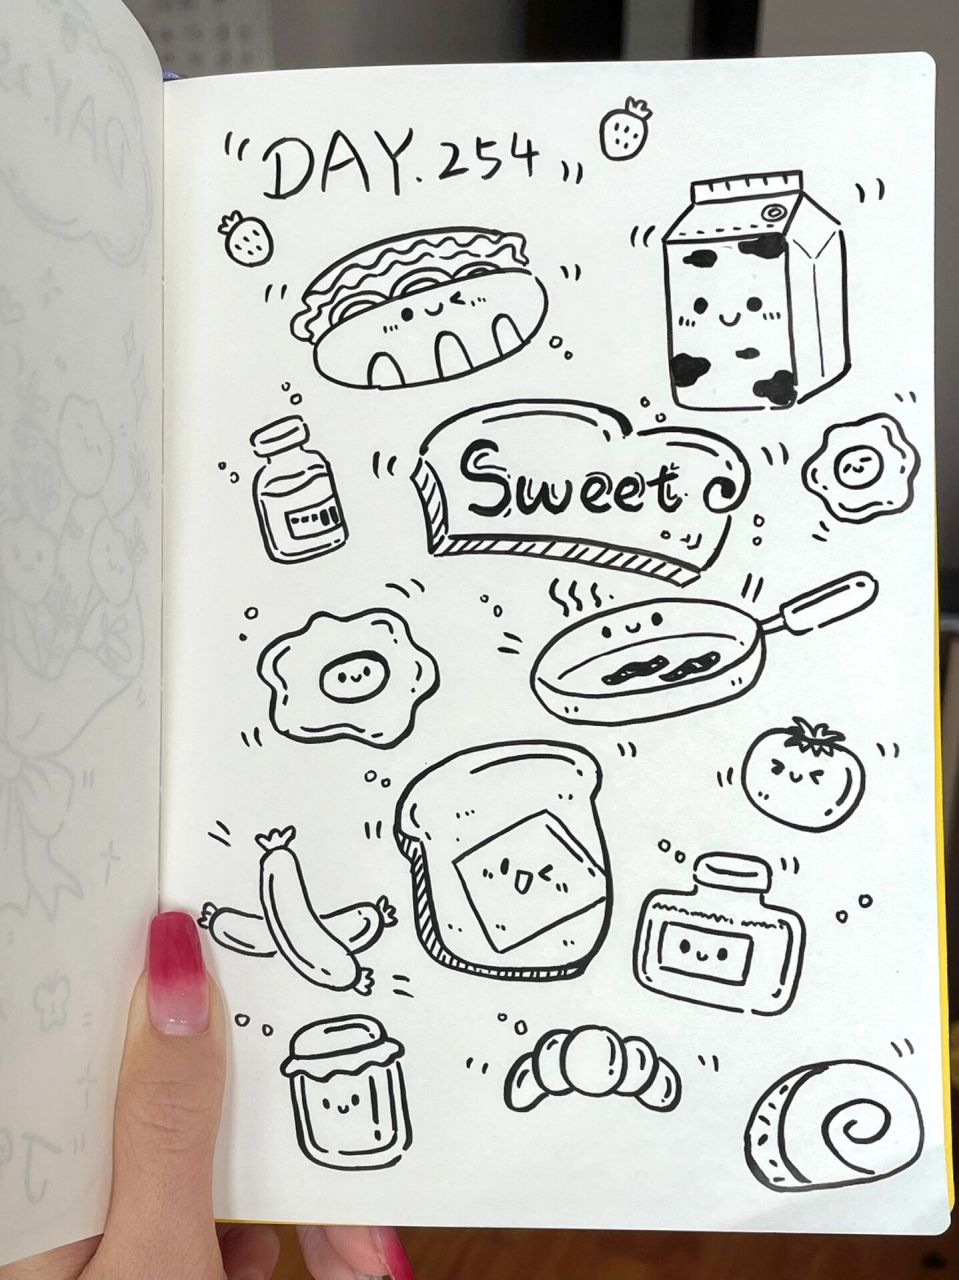 "DAY. 254"
Sweet